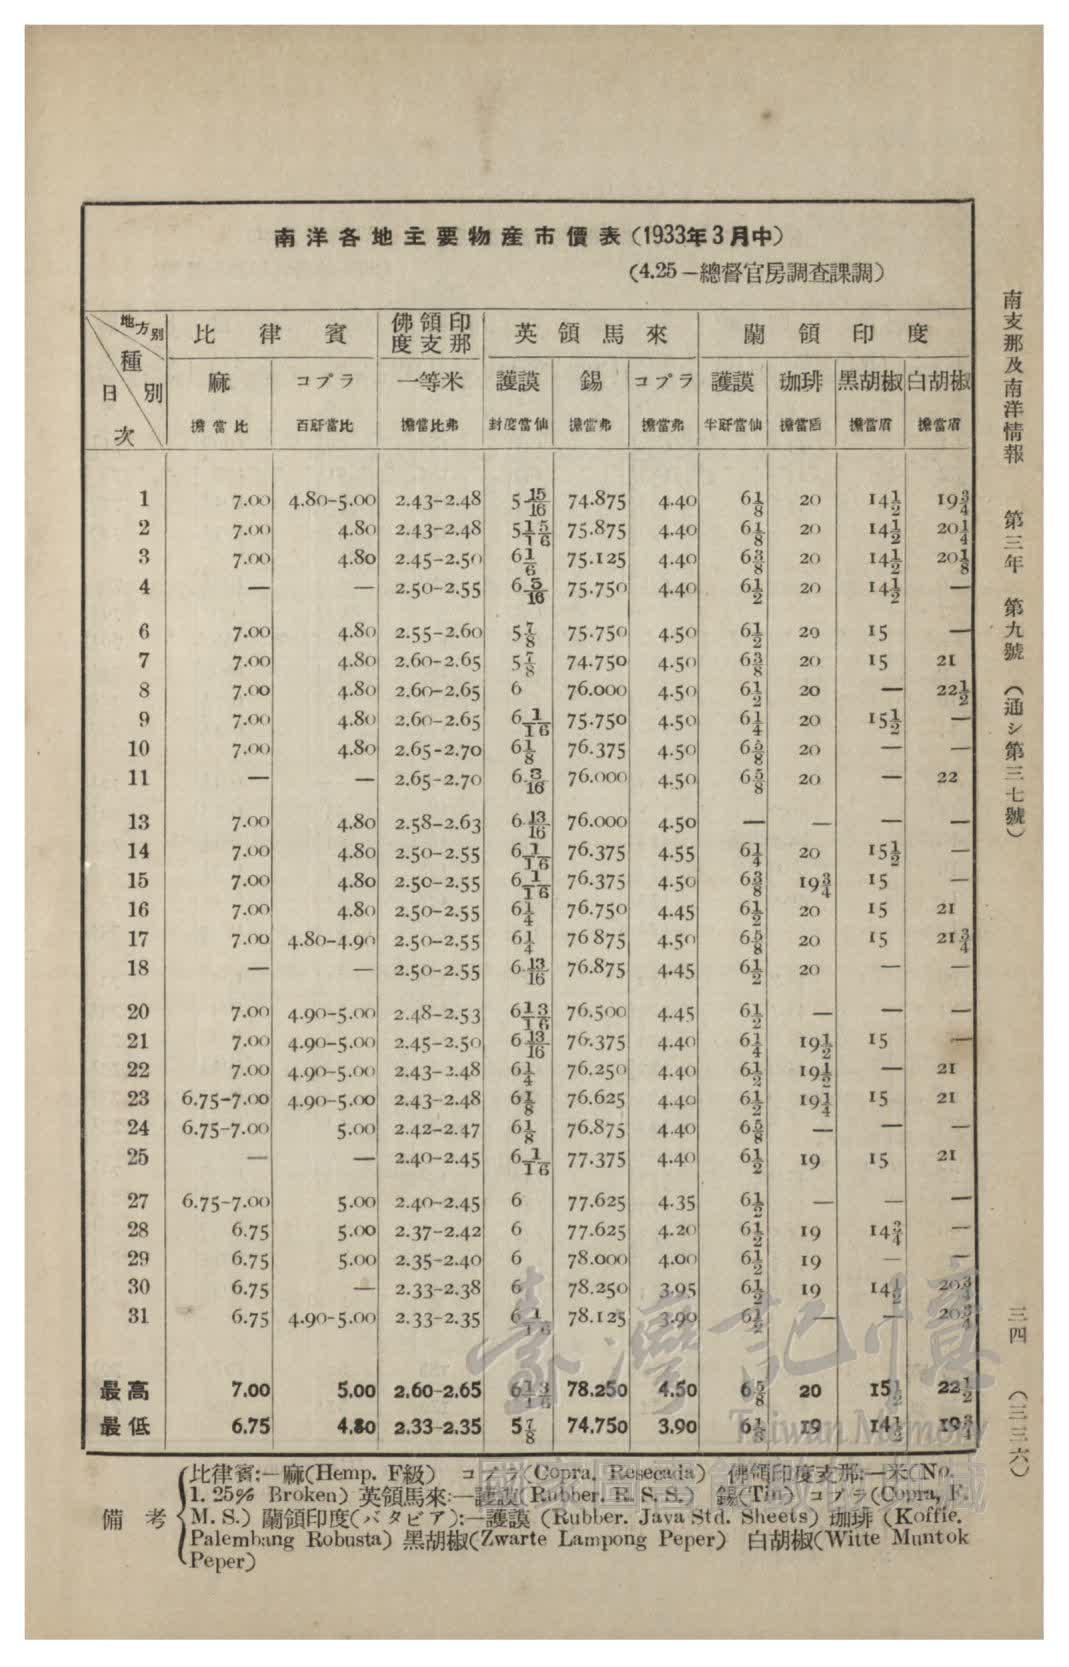 南洋各地主要物産市價表(1933年3月中)
(4.25—總督官房調查課調)
地方別 種別 日次 比律賓 佛領印度支那 英領馬來 蘭領印度
麻 コプラ 一等米 護謨 錫 コプラ 護謨 珈琲 黑胡椒 白胡椒
擔當比 百瓩當比 擔當比弗 封度當仙 擔當弗 擔當弗 半瓩當仙 擔當盾 擔當盾 擔當盾
1 7.00 4.80-5.00 2.43-2.48 5 15/16 74.875 4.40 6 1/8 20 14 1/2 19 3/4
2 7.00 4.80 2.43-2.48 5 15/16 75.875 4.40 6 1/8 20 14 1/2 20 1/4
3 7.00 4.80 2.45-2.50 6 1/6 75.125 4.40 6 3/8 20 14 1/2 20 1/8
4 — — 2.50-2.55 6 5/16 75.750 4.40 6 1/2 20 14 1/2 —
6 7.00 4.80 2.55-2.60 5 7/8 75.750 4.50 6 1/2 20 15 —
7 7.00 4.80 2.60-2.65 5 7/8 74.750 4.50 6 3/8 20 15 21
8 7.00 4.80 2.60-2.65 6 76.000 4.50 6 1/2 20 — 22 1/2
9 7.00 4.80 2.60-2.65 6 1/16 75.750 4.50 6 1/4 20 15 1/2 —
10 7.00 4.80 2.65-2.70 6 1/8 76.375 4.50 6 5/8 20 — —
11 — — 2.65-2.70 6 3/16 76.000 4.50 6 5/8 20 — 22
13 7.00 4.80 2.58-2.63 6 13/16 76.000 4.50 — — — —
14 7.00 4.80 2.50-2.55 6 1/16 76.375 4.55 6 1/4 20 15 1/2 —
15 7.00 4.80 2.50-2.55 6 1/16 76.375 4.50 6 3/8 19 3/4 15 —
16 7.00 4.80 2.50-2.55 6 1/4 76.750 4.45 6 1/2 20 15 21
17 7.00 4.80-4.90 2.50-2.55 6 1/4 76 875 4.50 6 5/8 20 15 21 3/4
18 — — 2.50-2.55 6 13/16 76.875 4.45 6 1/2 20 — —
20 7.00 4.90-5.00 2.48-2.53 6 13/16 76.500 4.45 6 1/2 — — —
21 7.00 4.90-5.00 2.45-2.50 6 13/16 76.375 4.40 6 1/4 19 1/2 15 —
22 7.00 4.90-5.00 2.43-2.48 6 1/4 76.250 4.40 6 1/2 19 1/2 — 21
23 6.75-7.00 4.90-5.00 2.43-2.48 6 1/8 76.625 4.40 6 1/2 19 1/4 15 21
24 6.75-7.00 5.00 2.42-2.47 6 1/8 76.875 4.40 6 5/8 — — —
25 — — 2.40-2.45 6 1/16 77.375 4.40 6 1/2 19 15 21
27 6.75-7.00 5.00 2.40-2.45 6 77.625 4.35 6 1/2 — — —
28 6.75 5.00 2.37-2.42 6 77.625 4.20 6 1/2 19 14 3/4 —
29 6.75 5.00 2.35-2.40 6 78.000 4.00 6 1/2 19 — —
30 6.75 — 2.33-2.38 6 78.250 3.95 6 1/2 19 14 1/2 20 3/4
31 6.75 4.90-5.00 2.33-2.35 6 1/16 78.125 3.90 6 1/2 — — 20 3/4
最高 7.00 5.00 2.60-2.65 6 13/16 78.250 4.50 6 5/8 20 15 1/2 22 1/2
最低 6.75 4.80 2.33-2.35 5 7/8 74.750 3.90 6 1/8 19 14 1/2 19 3/4
備考
比律賓:—麻(Hemp. F級) コプラ(Copra, Resecada) 佛領印度支那:—米(No.
1. 25% Broken) 英領馬來:—護謨(Rubber. R. S. S.) 錫(Tin) コプラ(Copra, F.
M. S.) 蘭領印度(バタビア):—護謨 (Rubber. Java Std. Sheets) 珈琲 (Koffie.
Palembang Robusta) 黑胡椒(Zwarte Lampong Peper) 白胡椒(Witte Muntok
Peper)
南支那及南洋情報 第三年 第九號 (通シ第三七號)
三四 (三三六)
臺灣記憶
Taiwan Memory